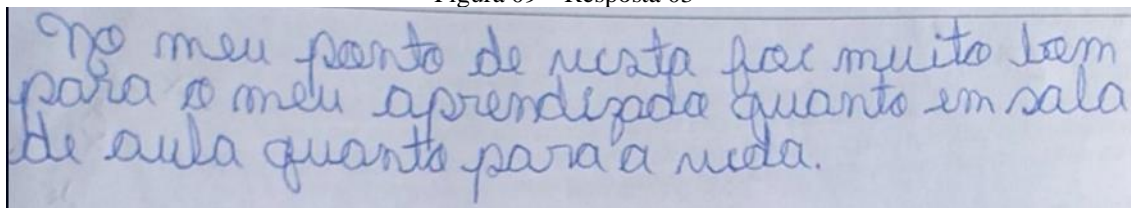 No meu ponto de vista foi muito bom
para o meu aprendizado quanto em sala
de aula quanto para a vida.